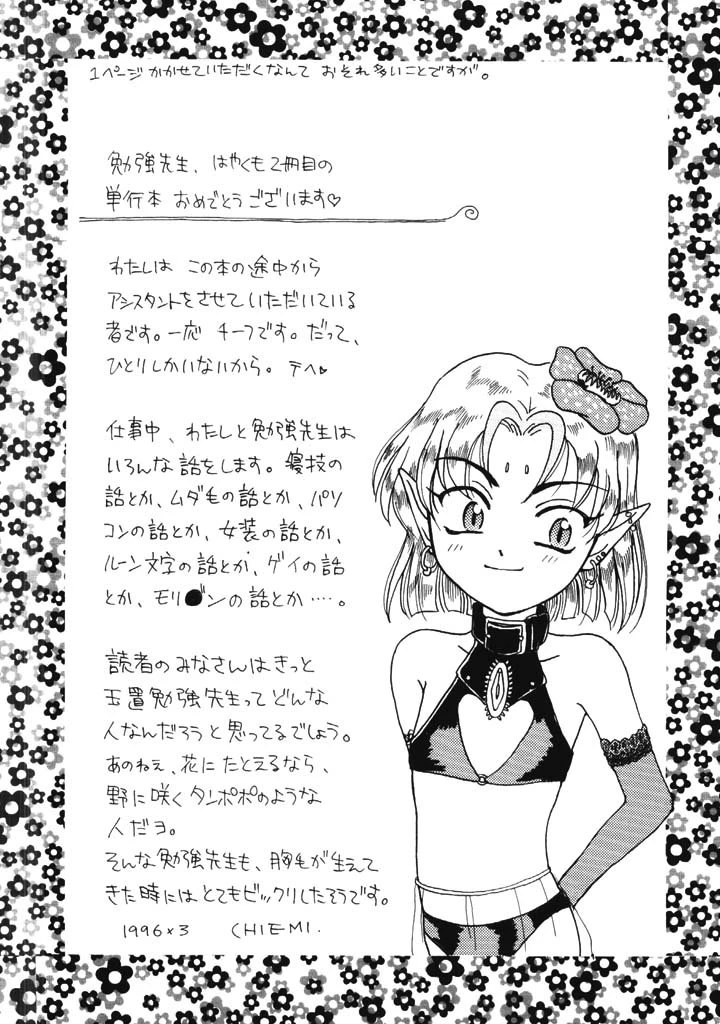 1ページかかせていただくなんて おそれ多いことですが。
勉強先生、はやくも2冊目の
単行本 おめでとうございます♡
わたしは この本の途中から
アシスタントをさせていただいている
者です。一応 チーフです。だって、
ひとりしかいないから。テヘ♥
仕事中、わたしと勉強先生は
いろんな話をします。寝技の
話とか、ムダ毛の話とか、パソ
コンの話とか、女装の話とか、
ルーン文字の話とか、ゲイの話
とか、モリ●ンの話とか…。
読者のみなさんはきっと
玉置勉強先生ってどんな
人なんだろうと思ってるでしょう。
あのねぇ、花にたとえるなら、
野に咲くタンポポのような
人だヨ。
そんな勉強先生も、胸毛が生えて
きた時にはとてもビックリしたそうです。
1996×3 CHIEMI.